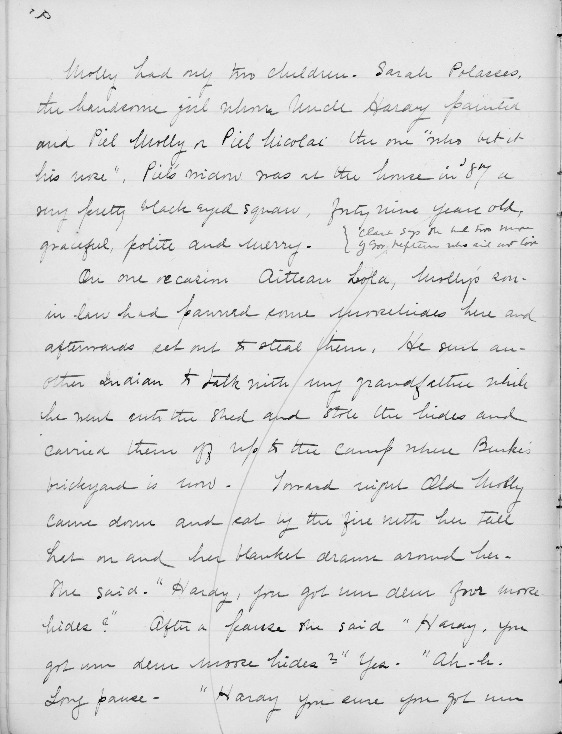 Molly had only two children. Sarah Polasses,
the handsome girl whom Uncle Hardy painted
and Piel Molly or Piel Nicolai the one "who bit it
his nose". Piel's widow was at the house in '87 a
very pretty black eyed squaw, forty nine years old,
graceful, polite and merry.
{ Clara says she had two more
by Gov. Neptune who did not live
On one occasion Aitteon Lola, Molly's son-
in law had pawned some moosehides here and
afterwards set out to steal them. He sent an-
other Indian to talk with my grandfather while
he went into the shed and stole the hides and
carried them off up to the camp where Burke's
brickyard is now. Toward night Old Molly
came down and sat by the fire with her tall
hat on and her blanket drawn around her.
She said. "Hardy, you got um dem four moose
hides?" After a pause she said "Hardy, you
got um dem moose hides?" Yes. "Ah-h.
Long pause - "Hardy you sure you got um